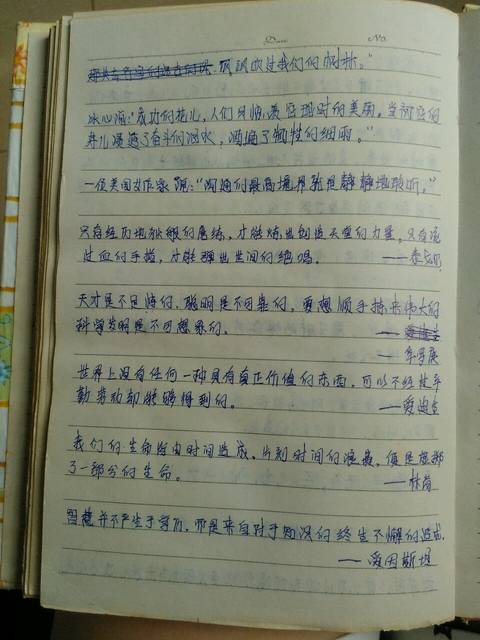 Date No.
飒飒吹过我们的树林。"
冰心说:"成功的花儿,人们只惊羡它现时的美丽,当初它的
芽儿浸透了奋斗的泪水,洒遍了牺牲的细雨。"
一位美国女作家说:"沟通的最高境界就是静静地聆听。"
只有经历地狱般的磨练,才能炼出创造天堂的力量。只有流
过血的手指,才能弹出世间的绝唱。 ——泰戈尔
天才是不足恃的,聪明是不可靠的,要想顺手拣来伟大的
科学发明是不可想象的。
——华罗庚
世界上没有任何一种具有真正价值的东西,可以不经过辛
勤劳动却能够得到的。 ——爱迪生
我们的生命皆由时间造成,片刻时间的浪费,便是虚掷
了一部分的生命。 ——林肯
智慧并不产生于学历,而是来自对于知识的终生不懈的追求。
——爱因斯坦